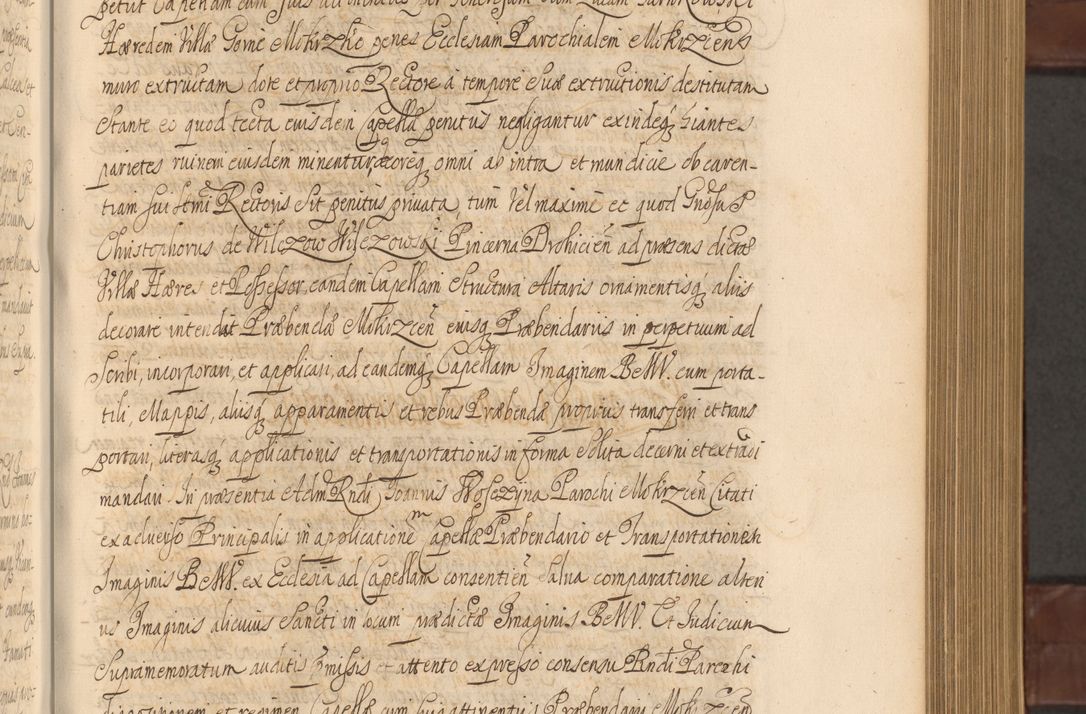 Hæredem Villæ Gorne Mokrzko penes Ecclesiam Parochialem Mokrzcens
muro extructam dote et proprio Rectore à tempore suæ extructionis destitutam
Stante eo quod tecta eiusdem Capellæ penitus negligantur exindeq hiantes
parietes ruinem eiusdem minentur, omni ab intra et mundicie ob caren-
tiam sui Rectoris sit penitus privata, tum vel maxime et quod
Christophorus de Wilczow Wilczowski Pincerna Drohicień ad præsens dictæ
Villæ Hæres et Possessor, eandem Capellam Structura Altaris ornamentisq aliis
decorare intendat Præbendæ Mokrzceń eiusq Præbendariis in perpetuum ad
scribi, incorporari, et applicari, ad eandemq Capellam Imaginem BMV. cum porta-
tili, Mappis, aliisq apparamentis et rebus Præbendæ propriis transferri et trans
portari, literasq applicationis et transportationis in forma solita decerni et extradi
mandari. In præsentia Adm Rndi Joannis Wosczyna Parochi Mokrzceń Citati
ex adverso Principalis in applicatione Capellæ Præbendario et Transportationem
Imaginis BMV. ex Ecclesia ad Capellam consentień salva comparatione alteri
us Imaginis alicuius Sancti in locum prædictæ Imaginis BMV. Et Judicium
Supramemoratum auditis præmissis et attento expresso consensu Rndi Parochi
et regimen Capellæ cum suis attinentiis Præbendario Mokrzcen